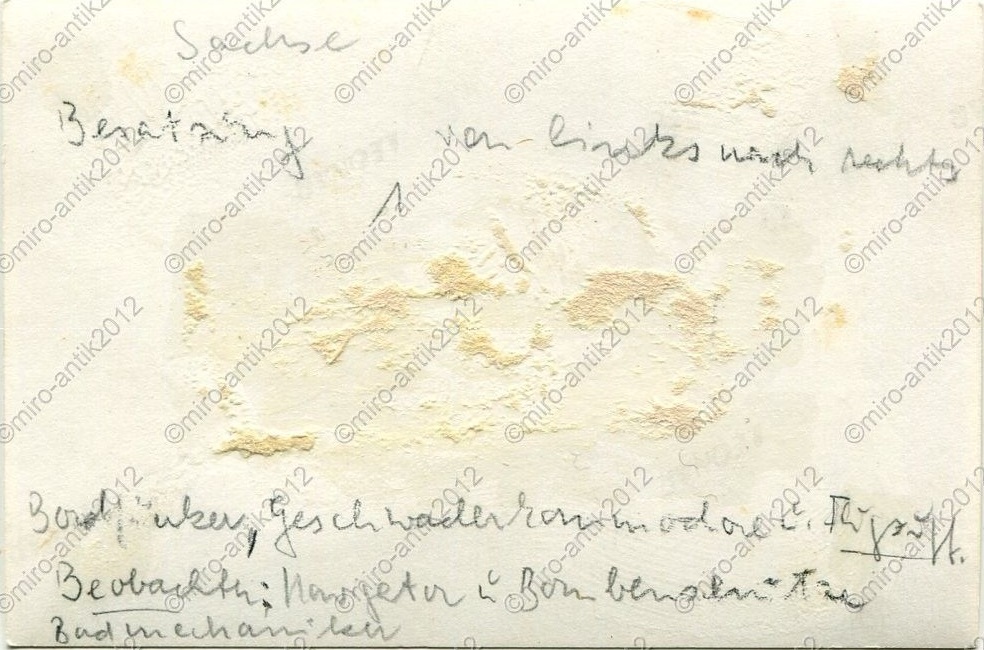 Sachse
Besatzung von links nach rechts
1
Bordfunker, Geschwaderkommodore u.
Beobachter: Navigator u Bombenschütze
Bordmechaniker
©miro-antik2012